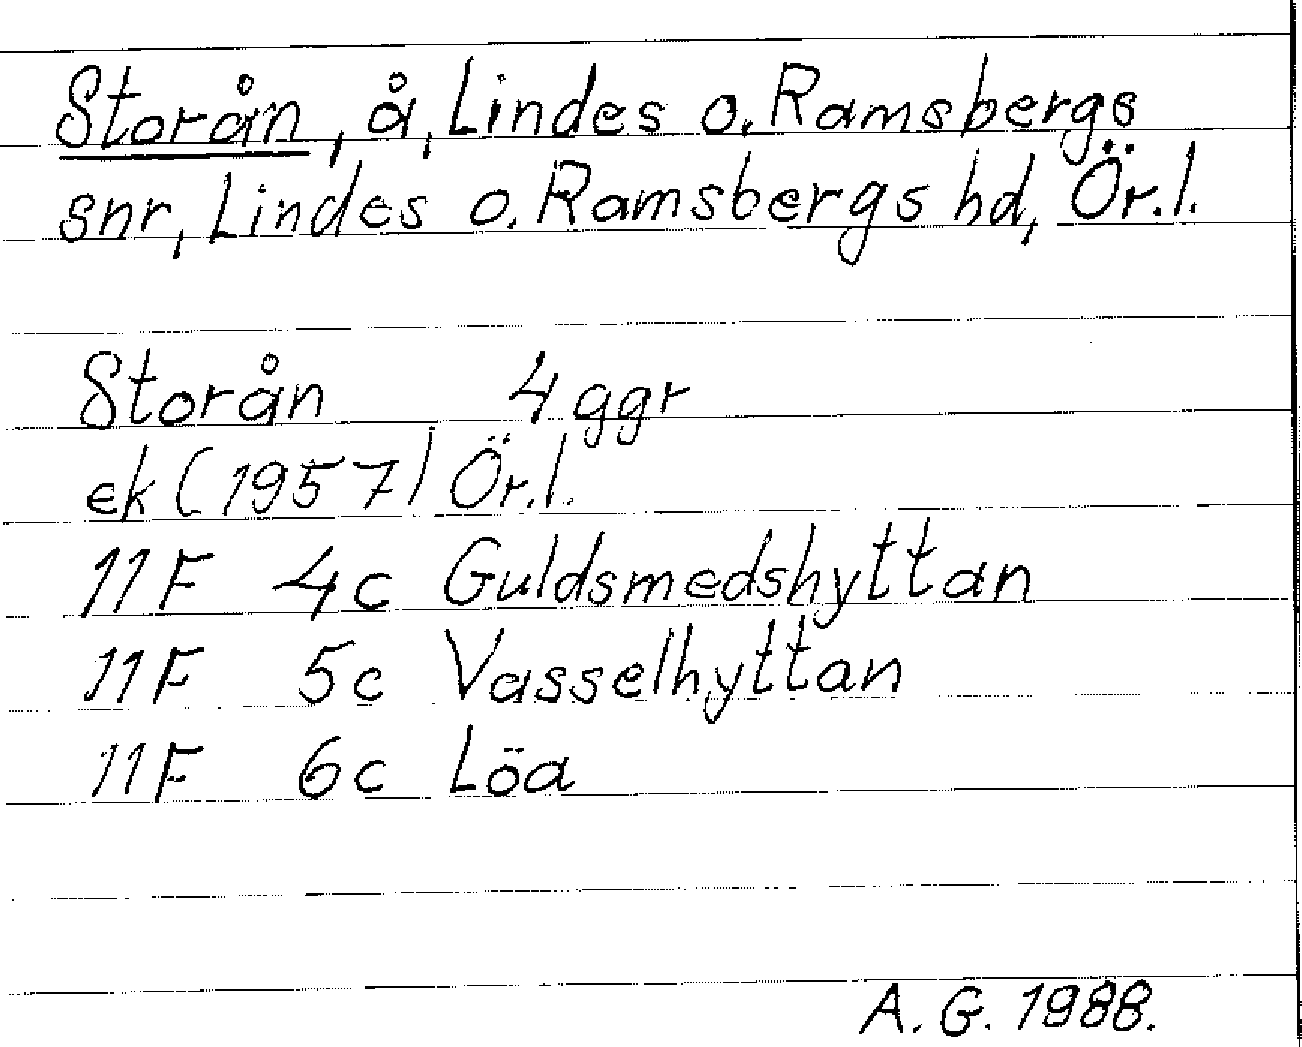 Storån, å, Lindes o. Ramsbergs
snr, Lindes o. Ramsbergs hd, Ör.l.
Storån 4 ggr
ek (1957) Ör.l.
11F 4c Guldsmedshyttan
11F 5c Vasselhyttan
11F 6c Löa
A. G. 1988.